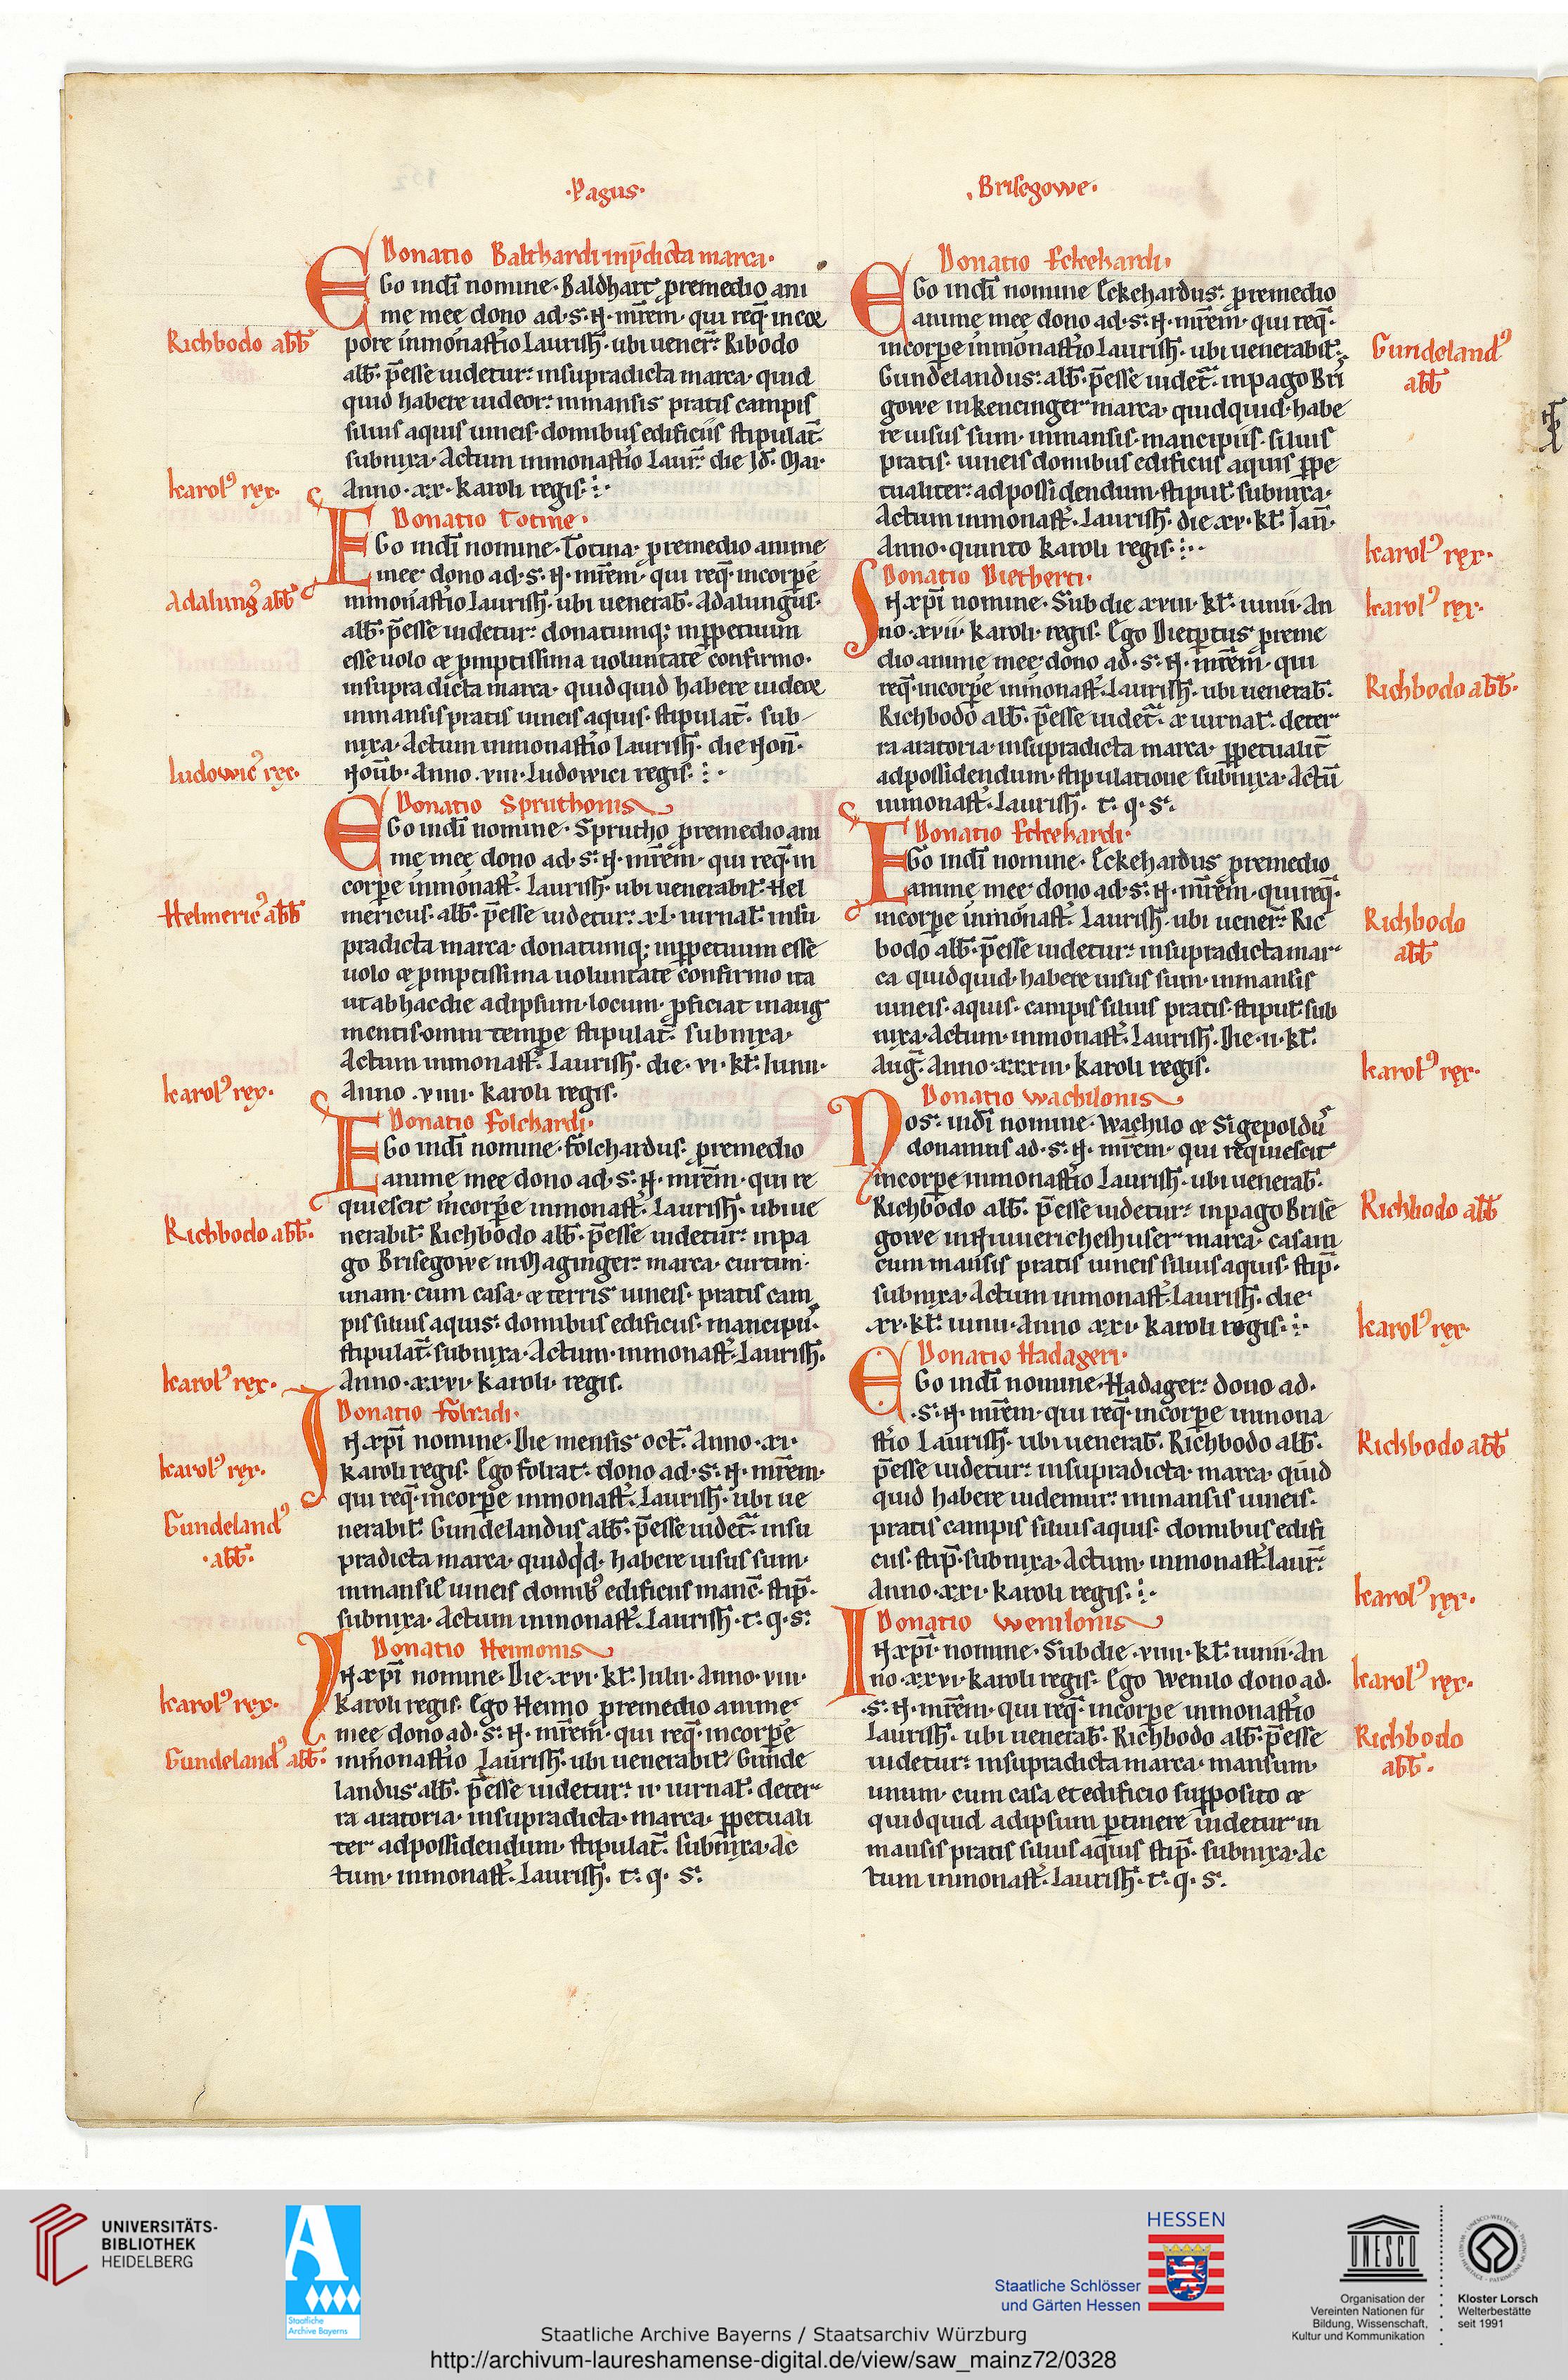 ·Pagus·
Donatio Balthardi inp̄dicta marca·
EGo indī nomine· Baldhart p̱remedio ani
me mee dono ad·s·N·mr̄em· qui req̄· incor
pore inmonastio Laurish̄· ubi uener̄· Ribodo
abb̄· p̄esse uidetur· insupradicta marca· quid
quid habere uideor· inmansis pratis campis
siluis aquis uineis· domibus edificiis stipulat̄·
subnixa· Actum inmonastio Laur̄· die Id̄· Mar·
Anno·xx·karoli regis·
Donatio Totine·
EGo indī nomine· Totina· p̱remedio anime
mee dono ad·s·N·mr̄em· qui req̄· incorpe
inmonastio Laurish̄· ubi uenerab̄· Adalungus·
abb̄· p̄esse uidetur· donatumq; inp̱petuum
esse uolo & p̱mptissima uoluntate confirmo·
insupra dicta marca· quidquid habere uideor
inmansis pratis uineis aquis· stipulat̄· sub
nixa· Actum inmonastio Laurish̄· die Non̄·
Nou̅b· Anno·viii·Ludowici regis·
Donatio Spruthonis
EGo indī nomine· Sprutho p̱remedio ani
me mee dono ad·s·N·mr̄em· qui req̄· in
corpe inmonast̄· Laurish̄· ubi uenerabil̄· Hel
mericus· abb̄· p̄esse uidetur· xl· iurnal̄· insu
pradicta marca· donatumq; inp̱petuum esse
uolo & p̱mptissima uoluntate confirmo ita
ut ab hac die adipsum· locum· p̱ficiat inaug
mentis· omni tempe stipulat̄· subnixa·
Actum inmonast̄· Laurish̄· die· vi· kl̄· Iunii·
Anno·viiii·karoli regis·
Donatio Folchardi·
EGo indī nomine· folchardus· p̱remedio
anime mee dono ad·s·N·mr̄em· qui re
quiescit incorpe inmonast̄· Laurish̄· ubi ue
nerabil̄· Richbodo abb̄· p̄esse uidetur· inpa
go Brisegowe inMaginger· marca· curtim·
unam· cum casa· & terris uineis· pratis cam
pis siluis aquis· domibus edificiis· mancipii·
stipulat̄· subnixa· Actum· inmonast̄· Laurish̄·
Anno·xxvi·karoli· regis·
Donatio Folradi·
INxp̄i nomine· Die mensis oct̄· Anno·xi·
karoli regis· Ego folrat· dono ad·s·N·mr̄em·
qui req̄· incorpe inmonast̄· Laurish̄· ubi ue
nerabil̄· Gundelandus abb̄· p̄esse uidet̄· insu
pradicta marca· quidqd· habere uisus sum·
inmansis uineis domib9 edificiis manc̄· stip̄·
subnixa· Actum inmonast̄· Laurish̄· t· q· s·
Donatio Heimonis
INxp̄i nomine· Die·xvi·kl̄· Iulii· Anno·viii·
karoli regis· Ego Heimo p̱remedio anime
mee dono ad·s·N·mr̄em· qui req̄· incorpe
inmonastio Laurish̄· ubi uenerabil̄· Gunde
landus abb̄· p̄esse uidetur· ii· iurnal̄· de ter
ra aratoria· insupradicta· marca· p̱petuali
ter adpossidendum· stipulat̄· subnixa· Ac
tum· inmonast̄· Laurish̄· t· q· s·
Richbodo abb̄
karol9 rex·
Adalung9 abb̄
ludowic9 rex·
Helmeric9 abb̄
karol9 rex·
Richbodo abb̄·
karol9 rex·
karol9 rex·
Gundeland9
·abb̄·
karol9 rex·
Gundeland9 abb̄·
·Brisegowe·
Donatio Eckehardi·
EGo indī nomine Eckehardus· p̱remedio
anime mee dono ad·s·N·mr̄em· qui req̄·
incorpe inmonastio Laurish̄· ubi uenerabil̄·
Gundelandus· abb̄· p̄esse uidet̄· inpago Bri
gowe inkencinger marca· quidquid· habe
re uisus sum· inmansis· mancipiis· siluis
pratis· uineis domibus edificiis aquis p̱pe
tualiter· adpossidendum· stipul̄· subnixa·
Actum inmonast̄· Laurish̄· die xv· kl̄· Ian̄·
Anno· quinto karoli regis·
Donatio Dietberti·
INxp̄i nomine· Sub die xviii· kl̄· iunii· An
no·xvii·karoli· regis· Ego Dietp̱tus p̱reme
dio anime mee dono ad·s·N·mr̄em· qui
req̄· incorpe inmonast̄· Laurish̄· ubi uenerab̄·
Richbodo abb̄· p̄esse uidet̄· x iurnal̄· de ter
ra aratoria· insupradicta marca· p̱petualit̄
adpossidendum· stipulatione subnixa· Actū
inmonast̄· Laurish̄· t· q· s·
Donatio Eckehardi·
EGo indī nomine· Eckehardus p̱remedio
anime mee dono ad·s·N·mr̄em· qui req̄·
incorpe inmonast̄· Laurish̄· ubi uener̄· Ric
bodo abb̄· p̄esse uidetur· insupradicta mar
ca quidquid· habere uisus sum· inmansis
uineis· aquis· campis siluis pratis· stipul̄· sub
nixa· Actum· inmonast̄· Laurish̄· Die·ii·kl̄·
Aug̅· Anno·xxxiii·karoli regis·
Donatio Wachilonis
Nos· indī nomine· Wachilo & Sigepoldū
donamus ad·s·N·mr̄em· qui requiescit
incorpe inmonastio Laurish̄· ubi uenerab̄·
Richbodo abb̄· p̄esse uidetur· inpago Brise
gowe inNiuuericheshuser marca· casam
cum mansis pratis uineis siluis aquis· stip̄·
subnixa· Actum inmonast̄· Laurish̄· die
xv·kl̄· iunii· Anno xxi·karoli regis·
Donatio Hadageri·
EGo indī nomine· Hadager· dono ad·
·s·N·mr̄em· qui req̄· incorpe inmona
stio Laurish̄· ubi uenerab̄· Richbodo abb̄·
p̄esse uidetur· insupradicta· marca· quid
quid habere uidemur· inmansis uineis·
pratis campis siluis aquis· domibus edifi
ciis· stip̄· subnixa· Actum· inmonast̄· Laur̄·
Anno·xxi·karoli regis·
Donatio Wenilonis
INxp̄i· nomine· Sub die·viiii·kl̄· iunii· An
no·xxvi·karoli regis· Ego Wenilo dono ad·
·s·N·mr̄em· qui req̄· incorpe inmonastio
Laurish̄· ubi uenerab̄· Richbodo abb̄· p̄esse
uidetur· insupradicta marca· mansum·
unum· cum casa et edificio supposito &
quidquid adipsum p̱tinere uidetur in
mansis pratis siluis aquis stip̄· subnixa· Ac
tum inmonast̄· Laurish̄· t· q· s·
Gundeland9
abb̄
karol9 rex·
karol9 rex·
Richbodo abb̄·
Richbodo
abb̄
karol9 rex·
Richbodo abb̄
karol9 rex·
Richbodo abb̄
karol9 rex·
karol9 rex·
Richbodo
abb̄·
UNIVERSITÄTS-
BIBLIOTHEK
HEIDELBERG
A
Staatliche
Archive Bayerns
HESSEN
Staatliche Schlösser
und Gärten Hessen
UNESCO
Organisation der
Vereinten Nationen für
Bildung, Wissenschaft,
Kultur und Kommunikation
Kloster Lorsch
Welterbestätte
seit 1991
Staatliche Archive Bayerns / Staatsarchiv Würzburg
http://archivum-laureshamense-digital.de/view/saw_mainz72/0328